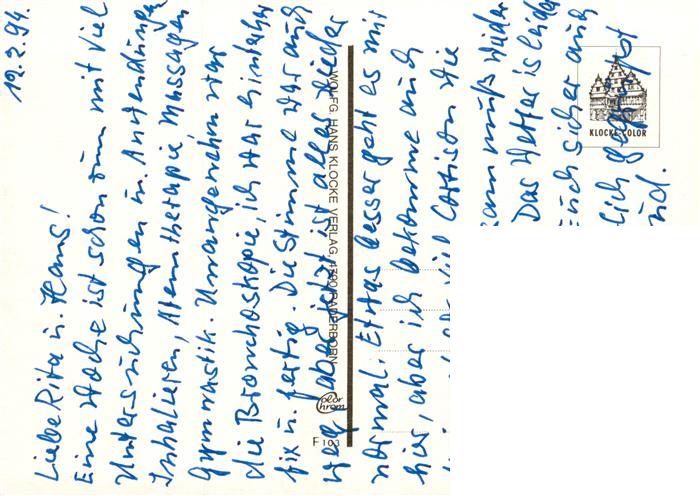 19.2.94.
Liebe Rita u. Hans!
Eine Woche ist schon rum mit viel
Untersuchungen u. Anwendungen
Inhalieren, Atemtherapie, Massagen
Gymnastik. Unangenehm war
die Bronchoskopie, ich war hinterher
fix u. fertig. Die Stimme war auch
weg aber jetzt ist alles wieder
normal. Etwas besser geht es mir
hier, aber ich bekomme auch
viel Cortison. Wie
dann muß wieder
Das Wetter ist leider
Euch sicher auch
lich geschippt
und.
WOLFG. HANS KLOCKE VERLAG, 4790 PADERBORN
Color
chrom
F 103
KLOCKE-COLOR